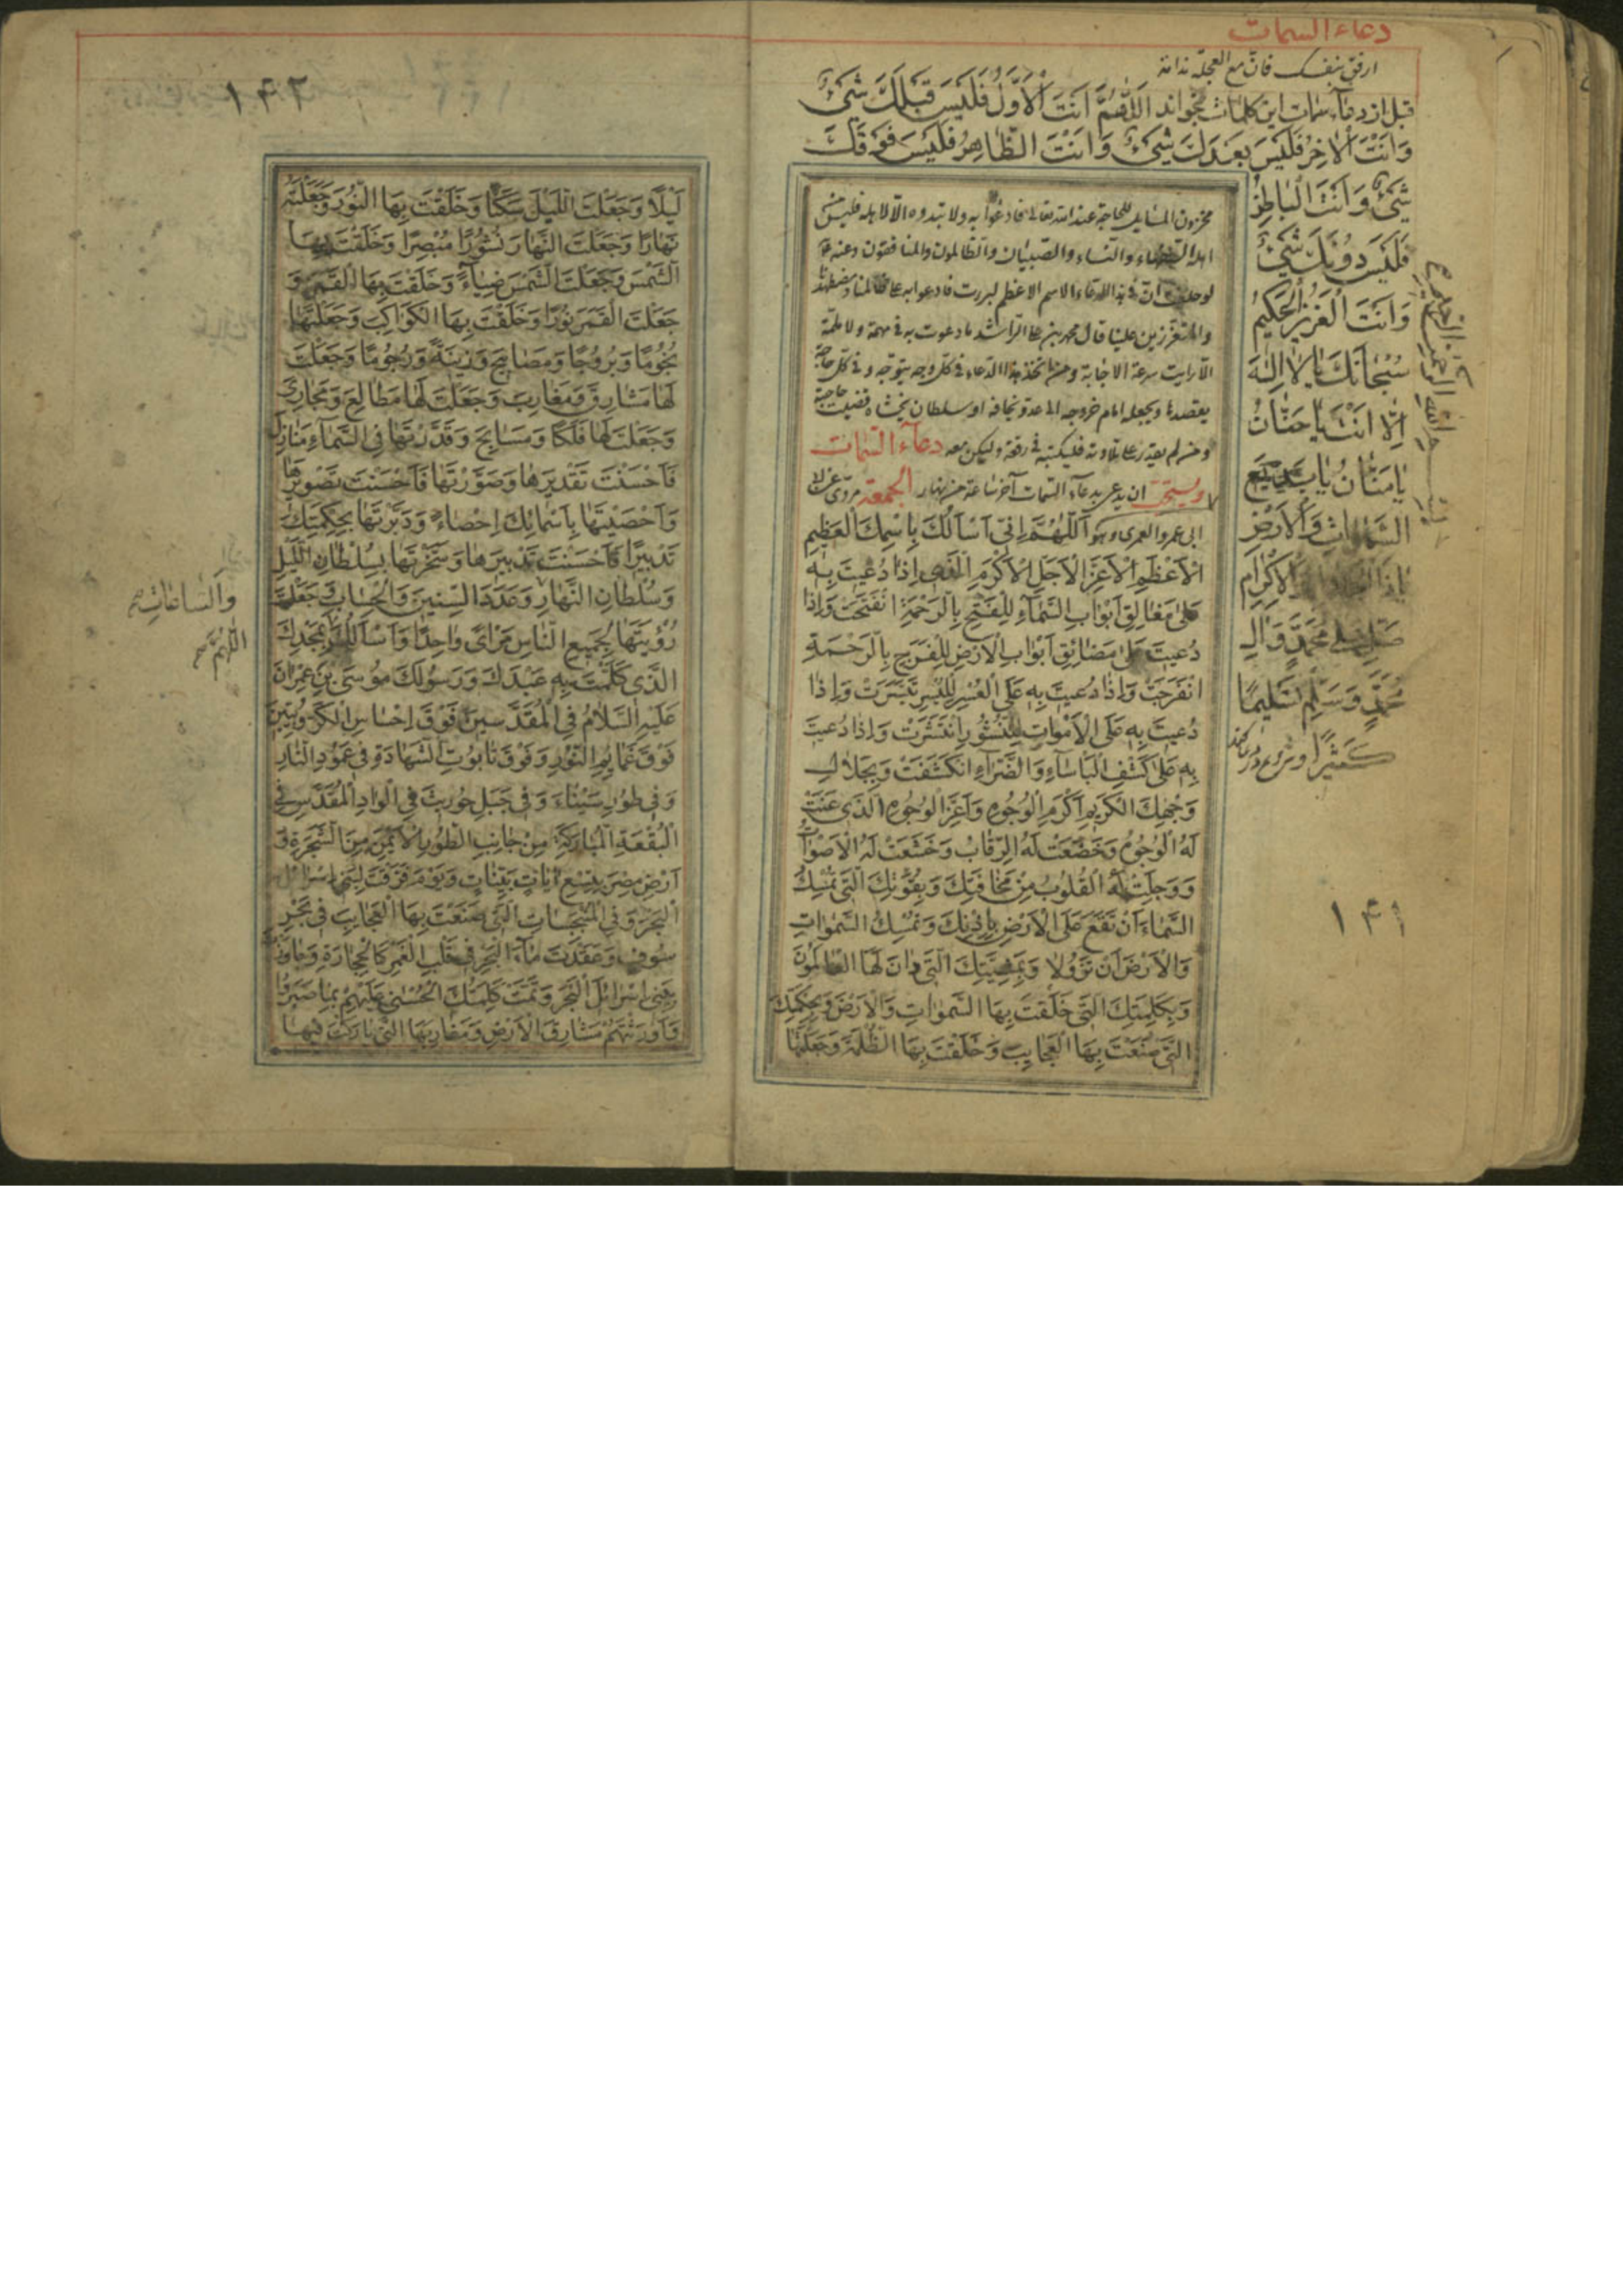 دعاء السمات
ارفق بنفسك فان مع العجلة ندامة
قبل از دعاء سمات این کلمات بخواند اَللّٰهُمَّ اَنْتَ الْاَوَّلُ فَلَیْسَ قَبْلَكَ شَیْءٌ
وَاَنْتَ الْاٰخِرُ فَلَیْسَ بَعْدَكَ شَیْءٌ وَاَنْتَ الظَّاهِرُ فَلَیْسَ فَوْقَكَ
شَیْءٌ وَاَنْتَ الْبَاطِنُ
فَلَیْسَ دُونَكَ شَیْءٌ
وَاَنْتَ الْعَزِیزُ الْحَكِیمُ
سُبْحَانَكَ یَا لَا اِلٰهَ
اِلَّا اَنْتَ یَا حَنَّانُ
یَا مَنَّانُ یَا بَدِیعَ
السَّمٰوَاتِ وَالْاَرْضِ
یَا ذَا الْجَلَالِ وَالْاِكْرَامِ
صَلِّ عَلٰی مُحَمَّدٍ وَاٰلِ
مُحَمَّدٍ وَسَلِّمْ تَسْلِیمًا
كَثِیرًا و شروع در دعا کند
۱۴۱
مخزون المسایل للحاجة عند الله تعالی فادعوا به ولا تبدوه الا لاهله فلیس من
اهله السفهاء والنساء والصبیان والظالمون والمنافقون وعنه ع
لو حلفت ان فی هذا الدعاء الاسم الاعظم لبررت فادعوا به علی ظالمنا ومضطهدنا
والمتعززین علینا قال محمد بن علی الراشد ما دعوت به فی مهمة ولا ملمة
الا رایت سرعة الاجابة ومن اتخذ هذا الدعاء فی كل وجه یتوجه و فی كل حاجة
یقصدها ویجعله امام خروجه الی عدو یخافه او سلطان یخشاه قضیت حاجته
ومن لم یقدر علی تلاوته فلیكتبه فی رقعة ولیكن معه دعاء السمات
ویستحب ان یدعی بدعاء السمات آخر ساعة من نهار الجمعة مروی عن
ابی عمرو العمری وهو اَللّٰهُمَّ اِنِّی اَسْاَلُكَ بِاسْمِكَ الْعَظِیمِ
الْاَعْظَمِ الْاَعَزِّ الْاَجَلِّ الْاَكْرَمِ الَّذِی اِذَا دُعِیتَ بِهِ
عَلٰی مَغَالِقِ اَبْوَابِ السَّمَآءِ لِلْفَتْحِ بِالرَّحْمَةِ انْفَتَحَتْ وَاِذَا
دُعِیتَ عَلٰی مَضَائِقِ اَبْوَابِ الْاَرْضِ لِلْفَرَجِ بِالرَّحْمَةِ
انْفَرَجَتْ وَاِذَا دُعِیتَ بِهِ عَلَی الْعُسْرِ لِلْیُسْرِ تَیَسَّرَتْ وَاِذَا
دُعِیتَ بِهِ عَلَی الْاَمْوَاتِ لِلنُّشُورِ انْتَشَرَتْ وَاِذَا دُعِیتَ
بِهِ عَلٰی كَشْفِ الْبَاْسَآءِ وَالضَّرَّآءِ انْكَشَفَتْ وَبِجَلَالِ
وَجْهِكَ الْكَرِیمِ اَكْرَمِ الْوُجُوهِ وَاَعَزِّ الْوُجُوهِ الَّذِی عَنَتْ
لَهُ الْوُجُوهُ وَخَضَعَتْ لَهُ الرِّقَابُ وَخَشَعَتْ لَهُ الْاَصْوَاتُ
وَوَجِلَتْ لَهُ الْقُلُوبُ مِنْ مَخَافَتِكَ وَبِقُوَّتِكَ الَّتِی تُمْسِكُ
السَّمَاءَ اَنْ تَقَعَ عَلَی الْاَرْضِ اِلَّا بِاِذْنِكَ وَتُمْسِكُ السَّمٰوَاتِ
وَالْاَرْضَ اَنْ تَزُولَا وَبِمَشِیَّتِكَ الَّتِی دَانَ لَهَا الْعَالَمُونَ
وَبِكَلِمَتِكَ الَّتِی خَلَقْتَ بِهَا السَّمٰوَاتِ وَالْاَرْضَ وَبِحِكْمَتِكَ
الَّتِی صَنَعْتَ بِهَا الْعَجَایِبَ وَخَلَقْتَ بِهَا الظُّلْمَةَ وَجَعَلْتَهَا
۱۴۲
لَیْلًا وَجَعَلْتَ اللَّیْلَ سَكَنًا وَخَلَقْتَ بِهَا النُّورَ وَجَعَلْتَهُ
نَهَارًا وَجَعَلْتَ النَّهَارَ نُشُورًا مُبْصِرًا وَخَلَقْتَ بِهَا
الشَّمْسَ وَجَعَلْتَ الشَّمْسَ ضِیَآءً وَخَلَقْتَ بِهَا الْقَمَرَ وَ
جَعَلْتَ الْقَمَرَ نُورًا وَخَلَقْتَ بِهَا الْكَوَاكِبَ وَجَعَلْتَهَا
نُجُومًا وَبُرُوجًا وَمَصَابِیحَ وَزِینَةً وَرُجُومًا وَجَعَلْتَ
لَهَا مَشَارِقَ وَمَغَارِبَ وَجَعَلْتَ لَهَا مَطَالِعَ وَمَجَارِیَ
وَجَعَلْتَ لَهَا فَلَكًا وَمَسَابِحَ وَقَدَّرْتَهَا فِی السَّمَآءِ مَنَازِلَ
فَاَحْسَنْتَ تَقْدِیرَهَا وَصَوَّرْتَهَا فَاَحْسَنْتَ تَصْوِیرَهَا
وَاَحْصَیْتَهَا بِاَسْمَائِكَ اِحْصَاءً وَدَبَّرْتَهَا بِحِكْمَتِكَ
تَدْبِیرًا فَاَحْسَنْتَ تَدْبِیرَهَا وَسَخَّرْتَهَا بِسُلْطَانِ اللَّیْلِ
وَسُلْطَانِ النَّهَارِ وَعَدَدَ السِّنِینَ وَالْحِسَابَ وَجَعَلْتَ
رُؤْیَتَهَا لِجَمِیعِ النَّاسِ مَرْاًی وَاحِدًا وَاَسْاَلُكَ بِمَجْدِكَ
الَّذِی كَلَّمْتَ بِهِ عَبْدَكَ وَرَسُولَكَ مُوسَی بْنَ عِمْرَانَ
عَلَیْهِ السَّلَامُ فِی الْمُقَدَّسِینَ فَوْقَ اِحْسَاسِ الْكَرُّوبِیِّینَ
فَوْقَ غَمَائِمِ النُّورِ وَفَوْقَ تَابُوتِ الشَّهَادَةِ فِی عَمُودِ النَّارِ
وَفِی طُورِ سَیْنَاءَ وَفِی جَبَلِ حُورِیثَ فِی الْوَادِ الْمُقَدَّسِ فِی
الْبُقْعَةِ الْمُبَارَكَةِ مِنْ جَانِبِ الطُّورِ الْاَیْمَنِ مِنَ الشَّجَرَةِ وَفِی
اَرْضِ مِصْرَ بِتِسْعِ اٰیَاتٍ بَیِّنَاتٍ وَیَوْمَ فَرَقْتَ لِبَنِی اِسْرَائِلَ
الْبَحْرَ وَفِی الْمُنْبَجِسَاتِ الَّتِی صَنَعْتَ بِهَا الْعَجَایِبَ فِی بَحْرِ
سُوفٍ وَعَقَدْتَ مَآءَ الْبَحْرِ فِی قَلْبِ الْغَمْرِ كَالْحِجَارَةِ وَجَاوَزْتَ
بِبَنِی اِسْرَائِلَ الْبَحْرَ وَتَمَّتْ كَلِمَتُكَ الْحُسْنٰی عَلَیْهِمْ بِمَا صَبَرُوا
وَاَوْرَثْتَهُمْ مَشَارِقَ الْاَرْضِ وَمَغَارِبَهَا الَّتِی بَارَكْتَ فِیهَا
وَالسَّاعَاتِ
اللّٰهُمَّ